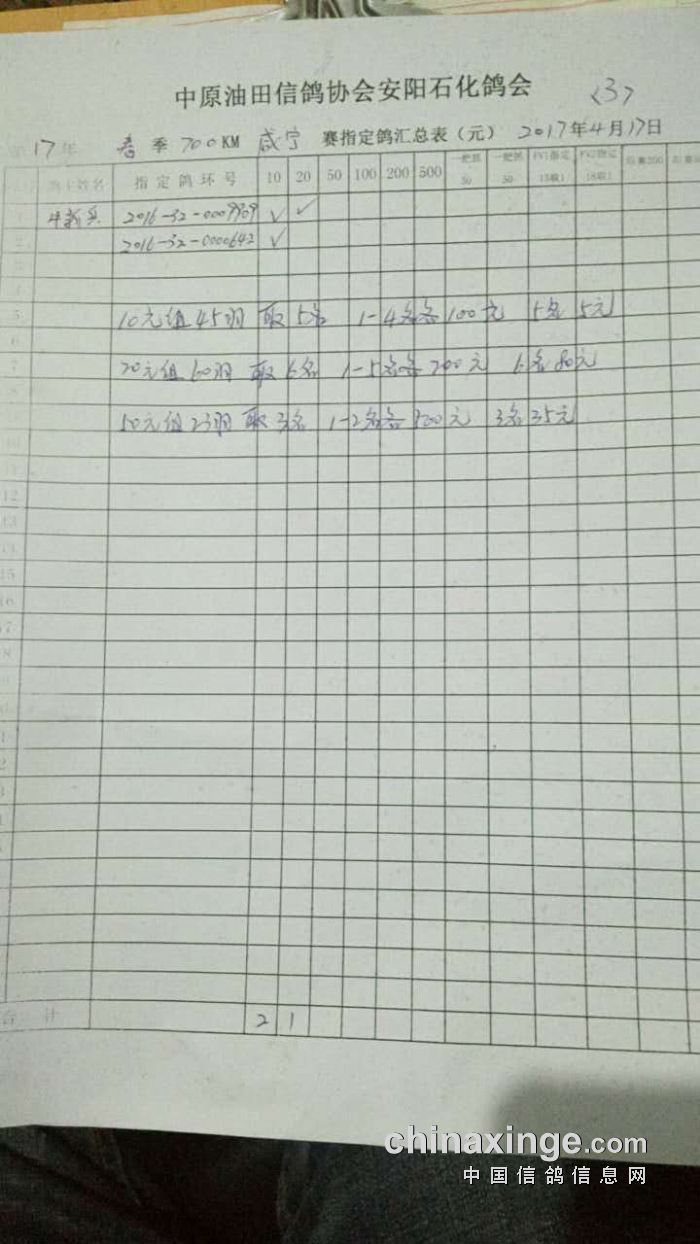 中原油田信鸽协会安阳石化鸽会 (3)
17年 春季 700KM 咸宁 赛指定鸽汇总表（元） 2017年4月17日
指定鸽环号 10 20 50 100 200 500
2016-32-0009909 ✓ ✓
2016-32-0000642 ✓
10元组 45羽 取5名 1-4名各100元 5名 5元
20元组 60羽 取6名 1-5名各200元 6名 80元
50元组 23羽 取3名 1-2名各 元 3名 35元
2 1
chinaxinge.com
中国信鸽信息网